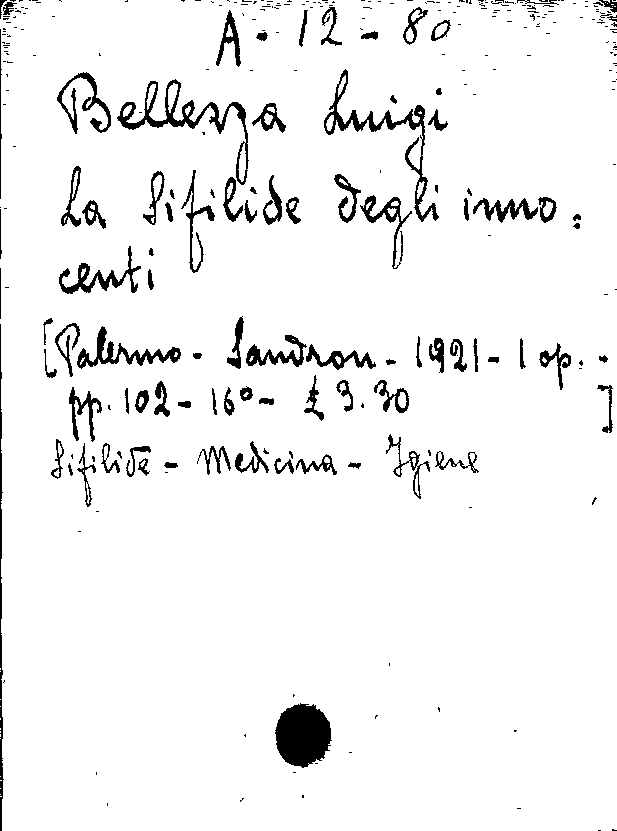 A - 12 - 80
Bellezza Luigi
La Sifilide degli inno:
centi
[Palermo - Sandron - 1921 - 1 op. -
pp. 102 - 16° - £ 3.30 ]
Sifilide - Medicina - Igiene